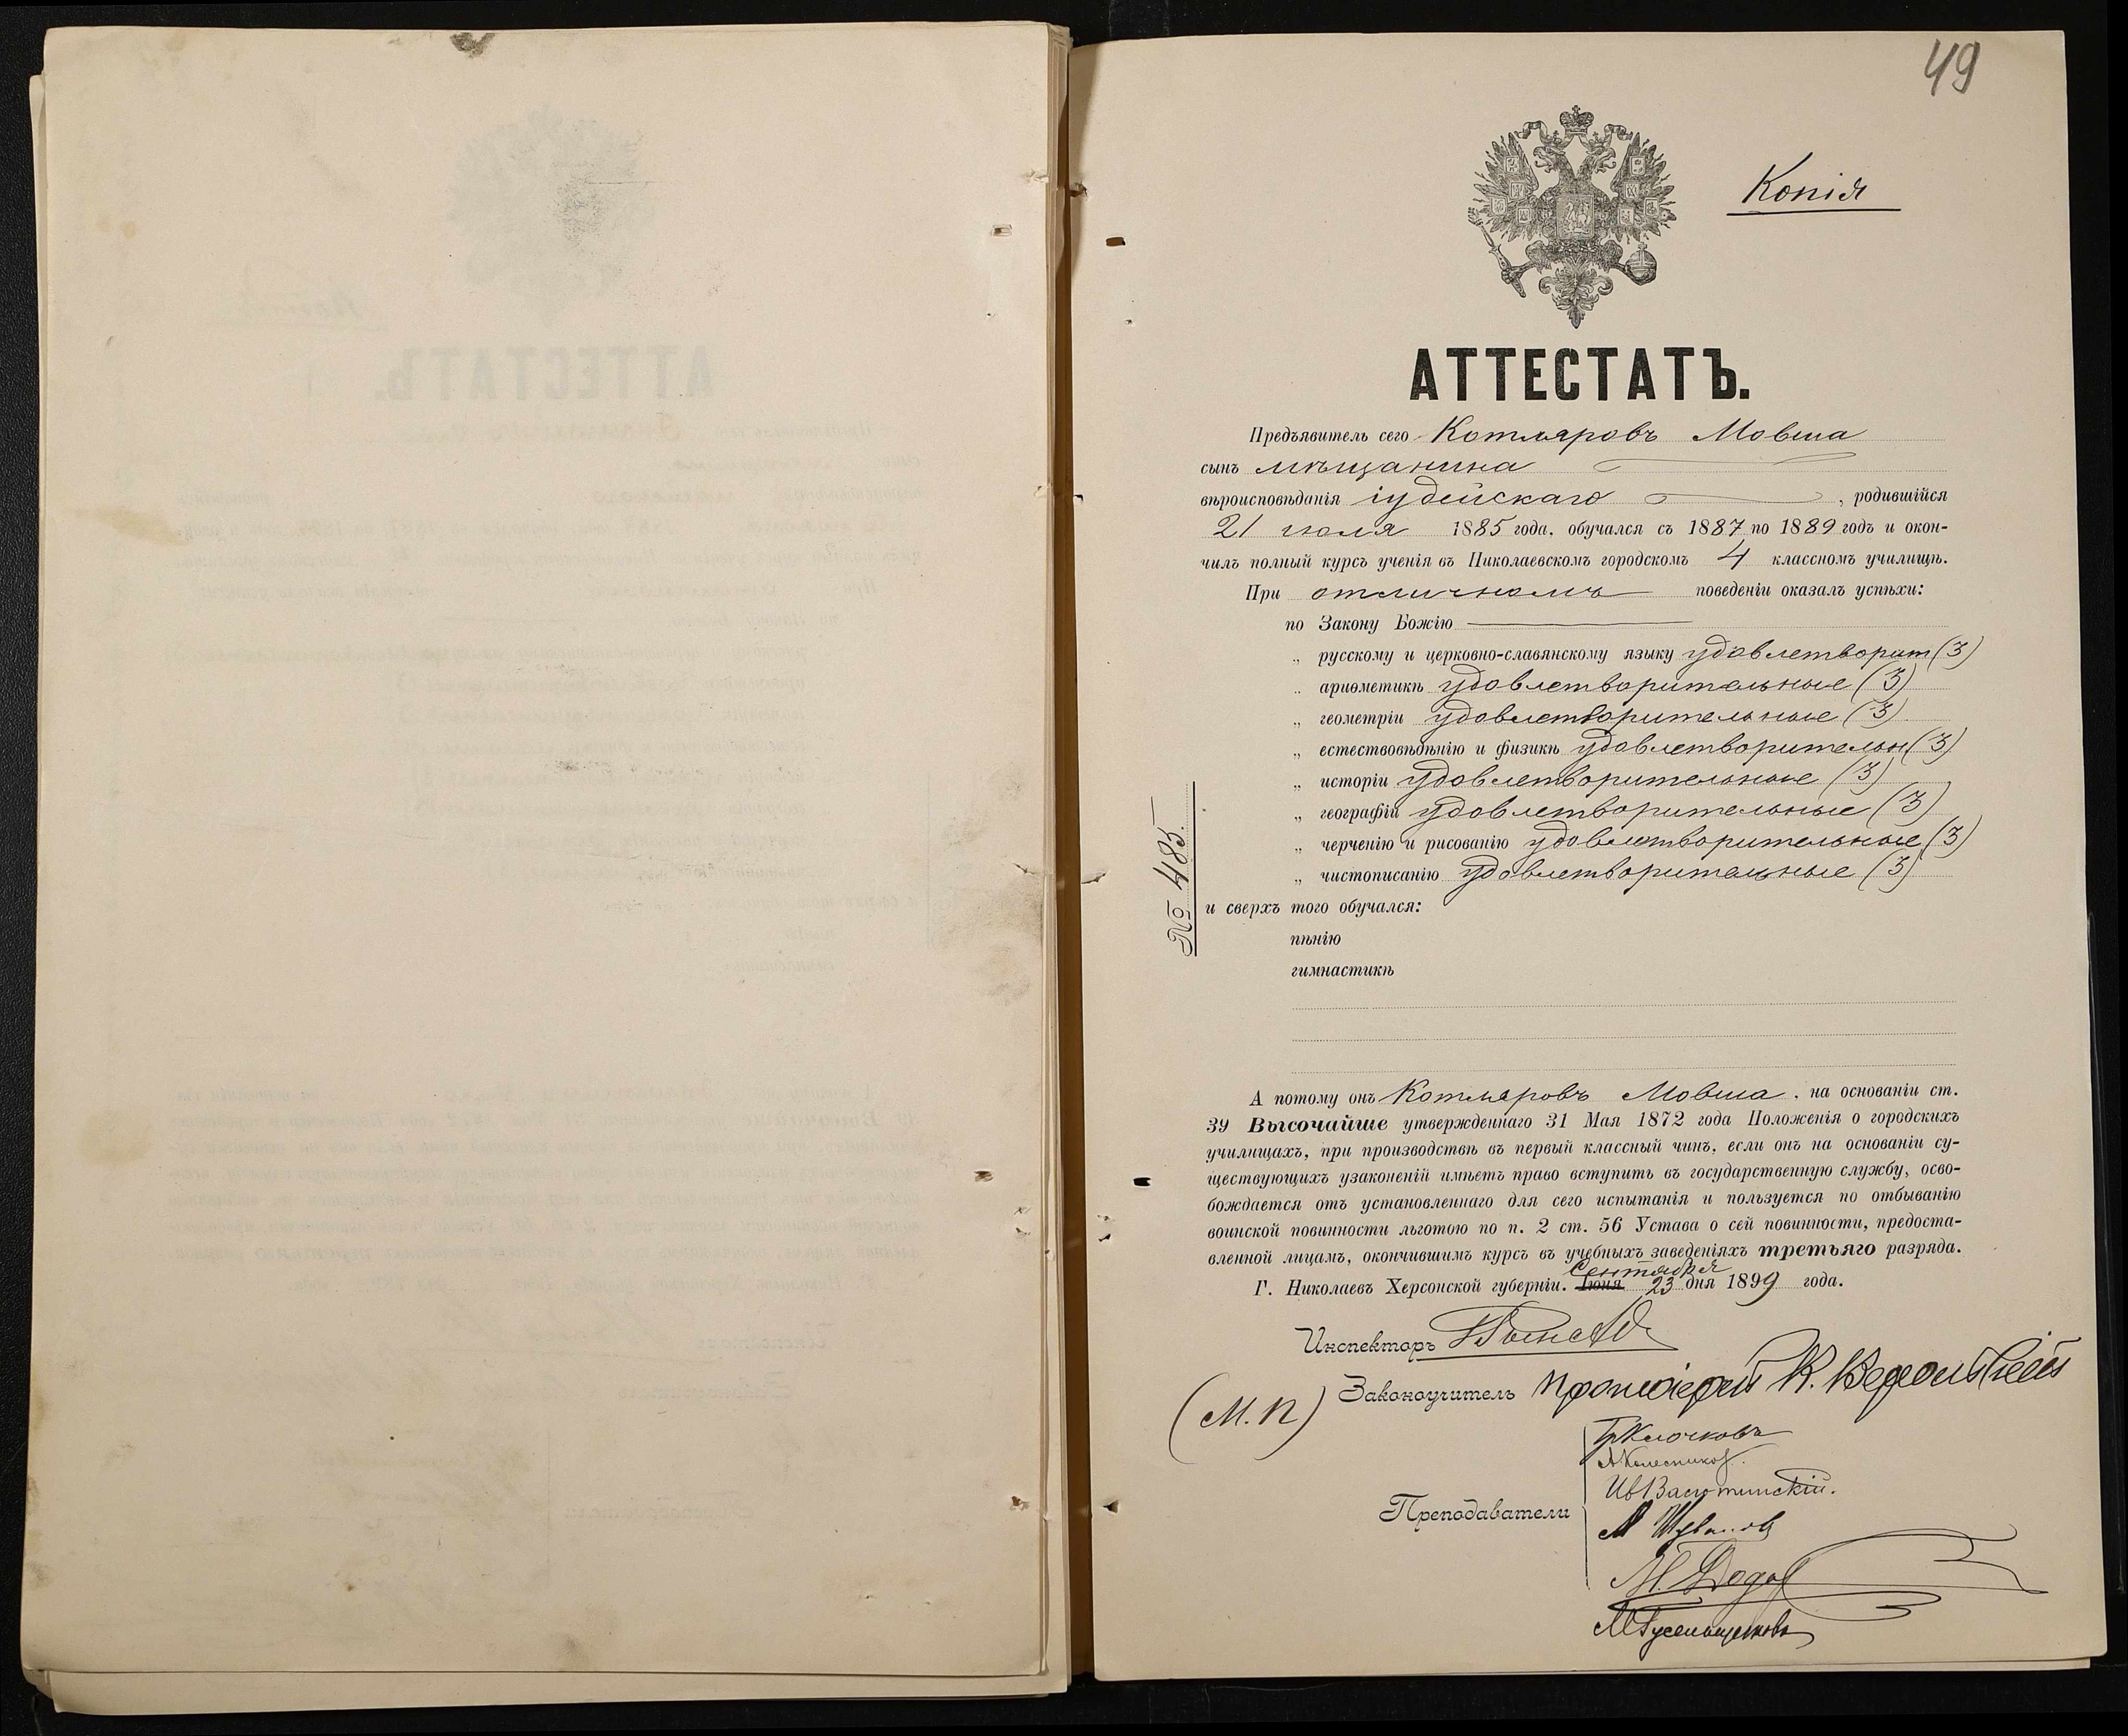 49
Копія
АТТЕСТАТЪ.
Предъявитель сего Котляровъ Мовша
сынъ мѣщанина
вѣроисповѣданія іудейскаго , родившійся
21 іюля 1885 года, обучался съ 1887 по 1889 годъ и окон-
чилъ полный курсъ ученія въ Николаевскомъ городскомъ 4 классномъ училищѣ.
При отличномъ поведеніи оказалъ успѣхи:
по Закону Божію
„ русскому и церковно-славянскому языку удовлетворит (3)
„ ариѳметикѣ удовлетворительные (3)
„ геометріи удовлетворительные (3)
„ естествовѣдѣнію и физикѣ удовлетворительн (3)
„ исторіи удовлетворительные (3)
„ географіи удовлетворительные (3)
„ черченію и рисованію удовлетворительные (3)
„ чистописанію удовлетворительные (3)
№ 485.
и сверхъ того обучался:
пѣнію
гимнастикѣ
А потому онъ Котляровъ Мовша, на основаніи ст.
39 Высочайше утвержденнаго 31 Мая 1872 года Положенія о городскихъ
училищахъ, при производствѣ въ первый классный чинъ, если онъ на основаніи су-
ществующихъ узаконеній имѣетъ право вступить въ государственную службу, осво-
бождается отъ установленнаго для сего испытанія и пользуется по отбыванію
воинской повинности льготою по п. 2 ст. 56 Устава о сей повинности, предоста-
вленной лицамъ, окончившимъ курсъ въ учебныхъ заведеніяхъ третьяго разряда.
Сентября
Г. Николаевъ Херсонской губерніи. Іюня 23 дня 1899 года.
Инспекторъ
Законоучитель протоіерей К.
(М.П)
Клочковъ
А Колесников
Преподаватели
Ив Васютинскій.